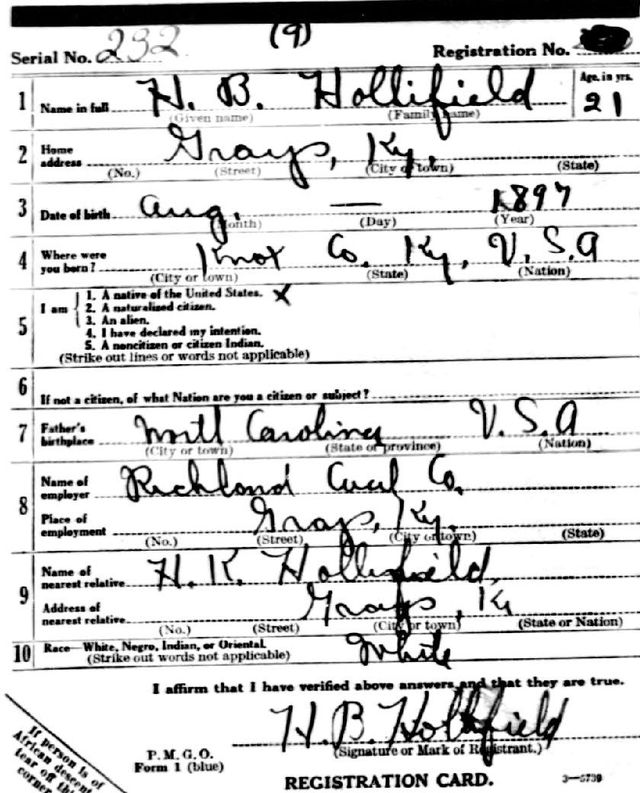 Serial No. 232 (9) Registration No.
1 Name in full H. B. Hollifield Age, in yrs. 21
(Given name) (Family name)
2 Home address Grays, Ky.
(No.) (Street) (City or town) (State)
3 Date of birth Aug. — 1897
(Month) (Day) (Year)
4 Where were you born? Knox Co. Ky, U.S.A
(City or town) (State) (Nation)
5 I am
1. A native of the United States. X
2. A naturalized citizen.
3. An alien.
4. I have declared my intention.
5. A noncitizen or citizen Indian.
(Strike out lines or words not applicable)
6 If not a citizen, of what Nation are you a citizen or subject?
7 Father's birthplace North Carolina U.S.A
(City or town) (State or province) (Nation)
8 Name of employer Richland Coal Co.
Place of employment Grays, Ky.
(No.) (Street) (City or town) (State)
9 Name of nearest relative H. K. Hollifield,
Address of nearest relative Grays, Ky
(No.) (Street) (City or town) (State or Nation)
10 Race—White, Negro, Indian, or Oriental. White
(Strike out words not applicable)
I affirm that I have verified above answers and that they are true.
H. B. Hollifield
(Signature or Mark of Registrant.)
P. M. G. O.
Form 1 (blue)
REGISTRATION CARD. 3—5739
If person is of
African descent
tear off this
corner